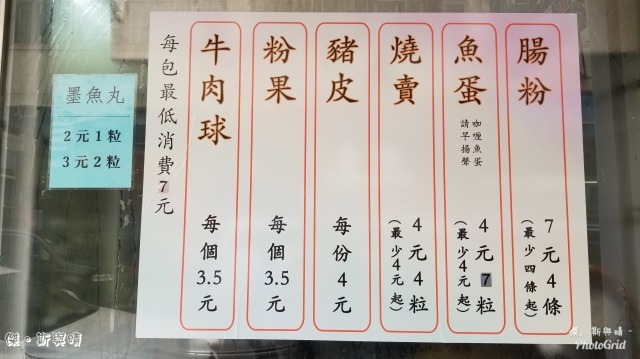 腸粉
7元4條
(最少四條起)
魚蛋
咖喱魚蛋
請早揚聲
4元7粒
(最少4元起)
燒賣
4元4粒
(最少4元起)
豬皮
每份4元
粉果
每個3.5元
牛肉球
每個3.5元
每包最低消費7元
墨魚丸
2元1粒
3元2粒
傑。斯與晴
傑。斯與晴。
PhotoGrid